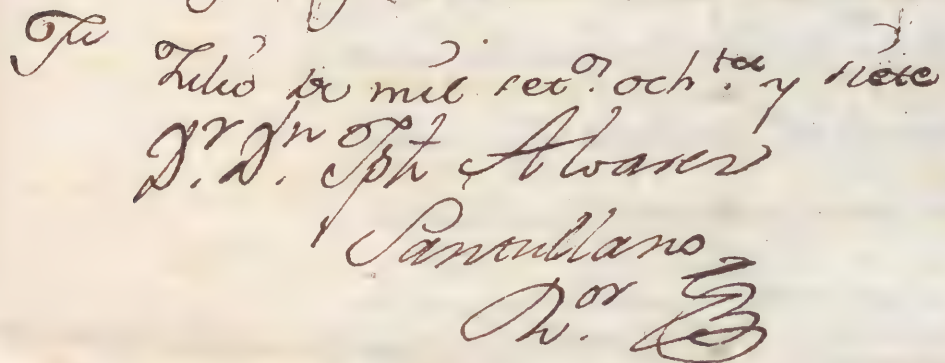 Julio de mil set.os och.ta y siete
D.r D.n Jph Alvarez
Santullano
R.or